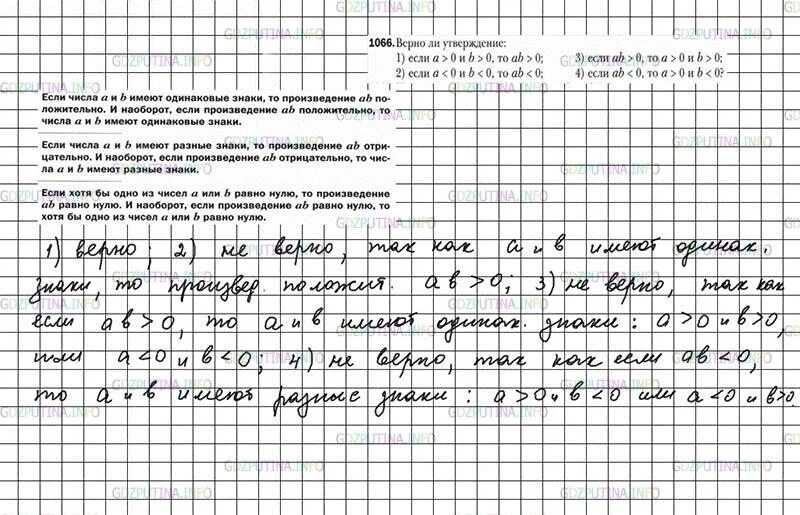 1066. Верно ли утверждение:
1) если a > 0 и b > 0, то ab > 0;
3) если ab > 0, то a > 0 и b > 0;
2) если a < 0 и b < 0, то ab < 0;
4) если ab < 0, то a > 0 и b < 0?
Если числа a и b имеют одинаковые знаки, то произведение ab по-
ложительно. И наоборот, если произведение ab положительно, то
числа a и b имеют одинаковые знаки.
Если числа a и b имеют разные знаки, то произведение ab отри-
цательно. И наоборот, если произведение ab отрицательно, то чис-
ла a и b имеют разные знаки.
Если хотя бы одно из чисел a или b равно нулю, то произведение
ab равно нулю. И наоборот, если произведение ab равно нулю, то
хотя бы одно из чисел a или b равно нулю.
1) верно; 2) не верно, так как a и в имеют одинак.
знаки, то произвед. положит. aв>0; 3) не верно, так как
если aв>0, то a и в имеют одинак. знаки: a>0 и в>0,
или a<0 и в<0; 4) не верно, так как если aв<0,
то a и в имеют разные знаки: a>0 и в<0 или a<0 и в>0.
GDZPUTINA.INFO